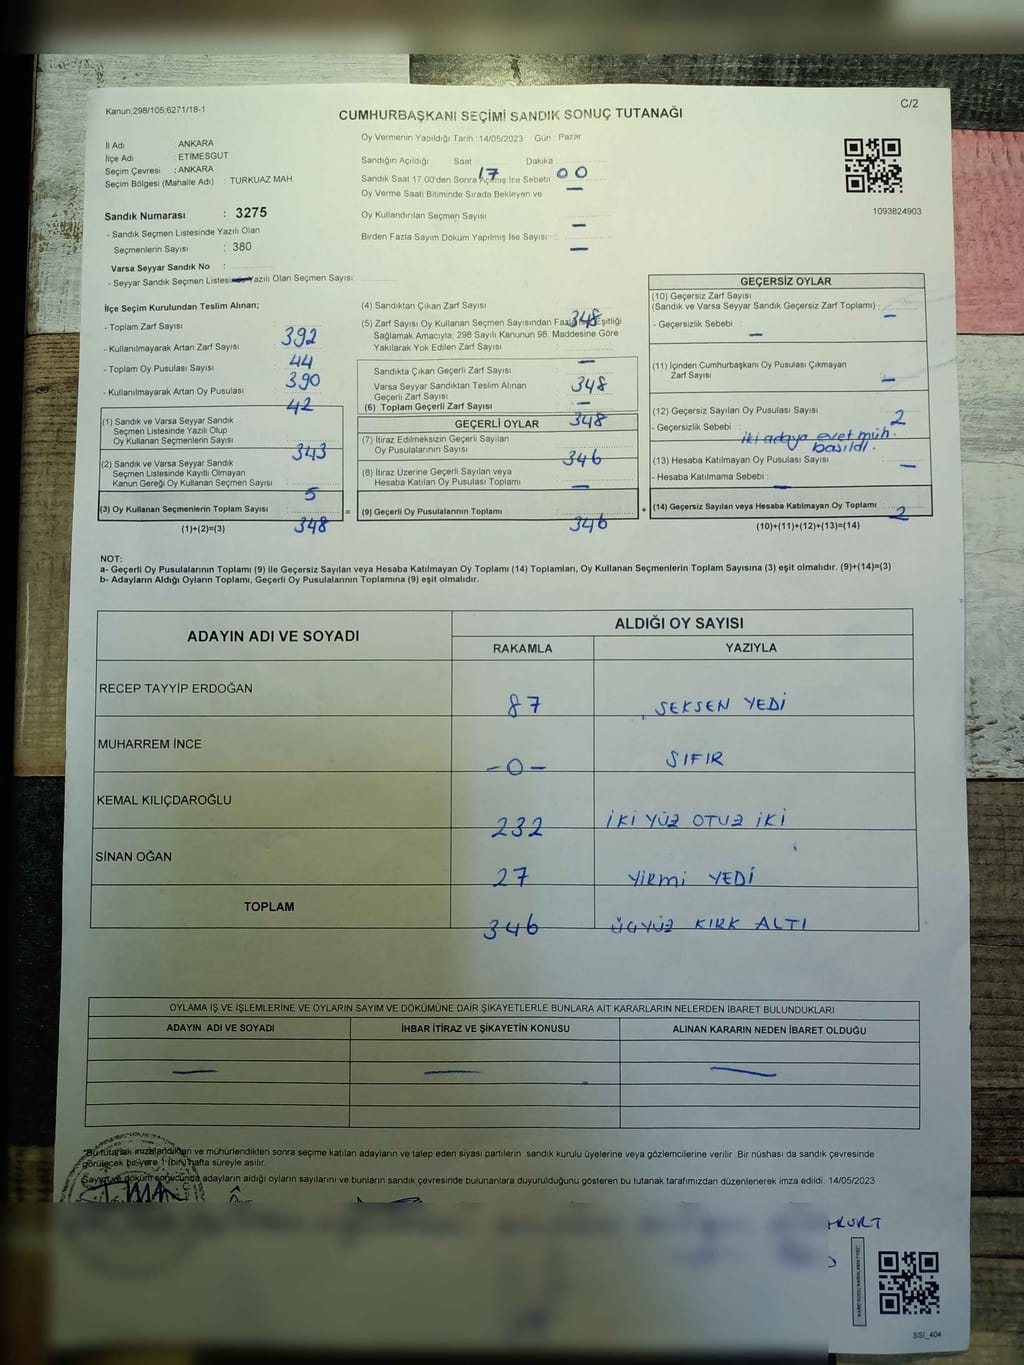 Kanun;298/105;6271/18-1
C/2
CUMHURBAŞKANI SEÇİMİ SANDIK SONUÇ TUTANAĞI
İl Adı : ANKARA
İlçe Adı : ETİMESGUT
Seçim Çevresi : ANKARA
Seçim Bölgesi (Mahalle Adı) : TURKUAZ MAH.
Sandık Numarası : 3275
- Sandık Seçmen Listesinde Yazılı Olan
Seçmenlerin Sayısı : 380
Varsa Seyyar Sandık No :
- Seyyar Sandık Seçmen Listesinde Yazılı Olan Seçmen Sayısı: —
Oy Vermenin Yapıldığı Tarih : 14/05/2023 Gün : Pazar
Sandığın Açıldığı Saat Dakika :
17 00
Sandık Saat 17.00'den Sonra Açılmış İse Sebebi
—
Oy Verme Saati Bitiminde Sırada Bekleyen ve
Oy Kullandırılan Seçmen Sayısı —
Birden Fazla Sayım Döküm Yapılmış İse Sayısı : —
1093824903
İlçe Seçim Kurulundan Teslim Alınan;
- Toplam Zarf Sayısı : 392
- Kullanılmayarak Artan Zarf Sayısı : 44
- Toplam Oy Pusulası Sayısı : 390
- Kullanılmayarak Artan Oy Pusulası : 42
(1) Sandık ve Varsa Seyyar Sandık
Seçmen Listesinde Yazılı Olup
Oy Kullanan Seçmenlerin Sayısı : 343
(2) Sandık ve Varsa Seyyar Sandık
Seçmen Listesinde Kayıtlı Olmayan
Kanun Gereği Oy Kullanan Seçmen Sayısı : 5
(3) Oy Kullanan Seçmenlerin Toplam Sayısı : 348
(1)+(2)=(3)
=
(4) Sandıktan Çıkan Zarf Sayısı : 348
(5) Zarf Sayısı Oy Kullanan Seçmen Sayısından Fazla İse Eşitliği
Sağlamak Amacıyla, 298 Sayılı Kanunun 98. Maddesine Göre
Yakılarak Yok Edilen Zarf Sayısı : —
Sandıkta Çıkan Geçerli Zarf Sayısı : 348
Varsa Seyyar Sandıktan Teslim Alınan
Geçerli Zarf Sayısı : —
(6) Toplam Geçerli Zarf Sayısı : 348
GEÇERLİ OYLAR
(7) İtiraz Edilmeksizin Geçerli Sayılan
Oy Pusulalarının Sayısı : 346
(8) İtiraz Üzerine Geçerli Sayılan veya
Hesaba Katılan Oy Pusulası Toplamı : —
(9) Geçerli Oy Pusulalarının Toplamı : 346
+
GEÇERSİZ OYLAR
(10) Geçersiz Zarf Sayısı
(Sandık ve Varsa Seyyar Sandık Geçersiz Zarf Toplamı) : —
- Geçersizlik Sebebi : —
(11) İçinden Cumhurbaşkanı Oy Pusulası Çıkmayan
Zarf Sayısı : —
(12) Geçersiz Sayılan Oy Pusulası Sayısı : 2
- Geçersizlik Sebebi : iki adaya evet müh.
basıldı.
(13) Hesaba Katılmayan Oy Pusulası Sayısı : —
- Hesaba Katılmama Sebebi : —
(14) Geçersiz Sayılan veya Hesaba Katılmayan Oy Toplamı : 2
(10)+(11)+(12)+(13)=(14)
NOT:
a- Geçerli Oy Pusulalarının Toplamı (9) ile Geçersiz Sayılan veya Hesaba Katılmayan Oy Toplamı (14) Toplamları, Oy Kullanan Seçmenlerin Toplam Sayısına (3) eşit olmalıdır. (9)+(14)=(3)
b- Adayların Aldığı Oyların Toplamı, Geçerli Oy Pusulalarının Toplamına (9) eşit olmalıdır.
ADAYIN ADI VE SOYADI
ALDIĞI OY SAYISI
RAKAMLA YAZIYLA
RECEP TAYYİP ERDOĞAN 87 SEKSEN YEDİ
MUHARREM İNCE -0- SIFIR
KEMAL KILIÇDAROĞLU 232 İKİ YÜZ OTUZ İKİ
SİNAN OĞAN 27 YİRMİ YEDİ
TOPLAM 346 ÜÇYÜZ KIRK ALTI
OYLAMA İŞ VE İŞLEMLERİNE VE OYLARIN SAYIM VE DÖKÜMÜNE DAİR ŞİKAYETLERLE BUNLARA AİT KARARLARIN NELERDEN İBARET BULUNDUKLARI
ADAYIN ADI VE SOYADI İHBAR İTİRAZ VE ŞİKAYETİN KONUSU ALINAN KARARIN NEDEN İBARET OLDUĞU
— — —
"Bu tutanak imzalandıktan ve mühürlendikten sonra seçime katılan adayların ve talep eden siyasi partilerin sandık kurulu üyelerine veya gözlemcilerine verilir. Bir nüshası da sandık çevresinde
görülecek bir yere 1 (bir) hafta süreyle asılır.
Sayım ve döküm sonucunda adayların aldığı oyların sayılarını ve bunların sandık çevresinde bulunanlara duyurulduğunu gösteren bu tutanak tarafımızdan düzenlenerek imza edildi. 14/05/2023
KURT
SSI_404